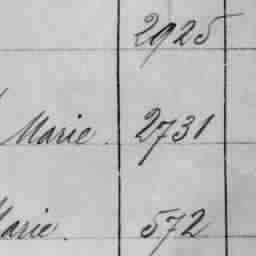 2925
Marie. 2731
Marie. 572